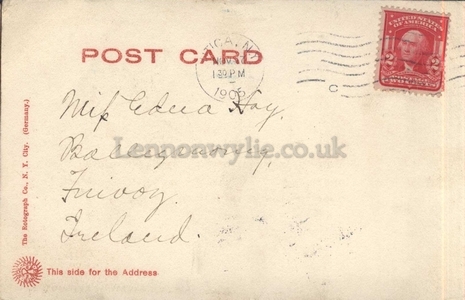 UNITED STATES OF AMERICA
POST CARD
UTICA, N.Y.
NOV
1 30 P M
1905
C
2 2
POSTAGE
TWO CENTS
Miss Edna Hay,
Lennonwylie.co.uk
Finvoy,
Ireland.
The Rotograph Co., N. Y. City. (Germany.)
This side for the Address